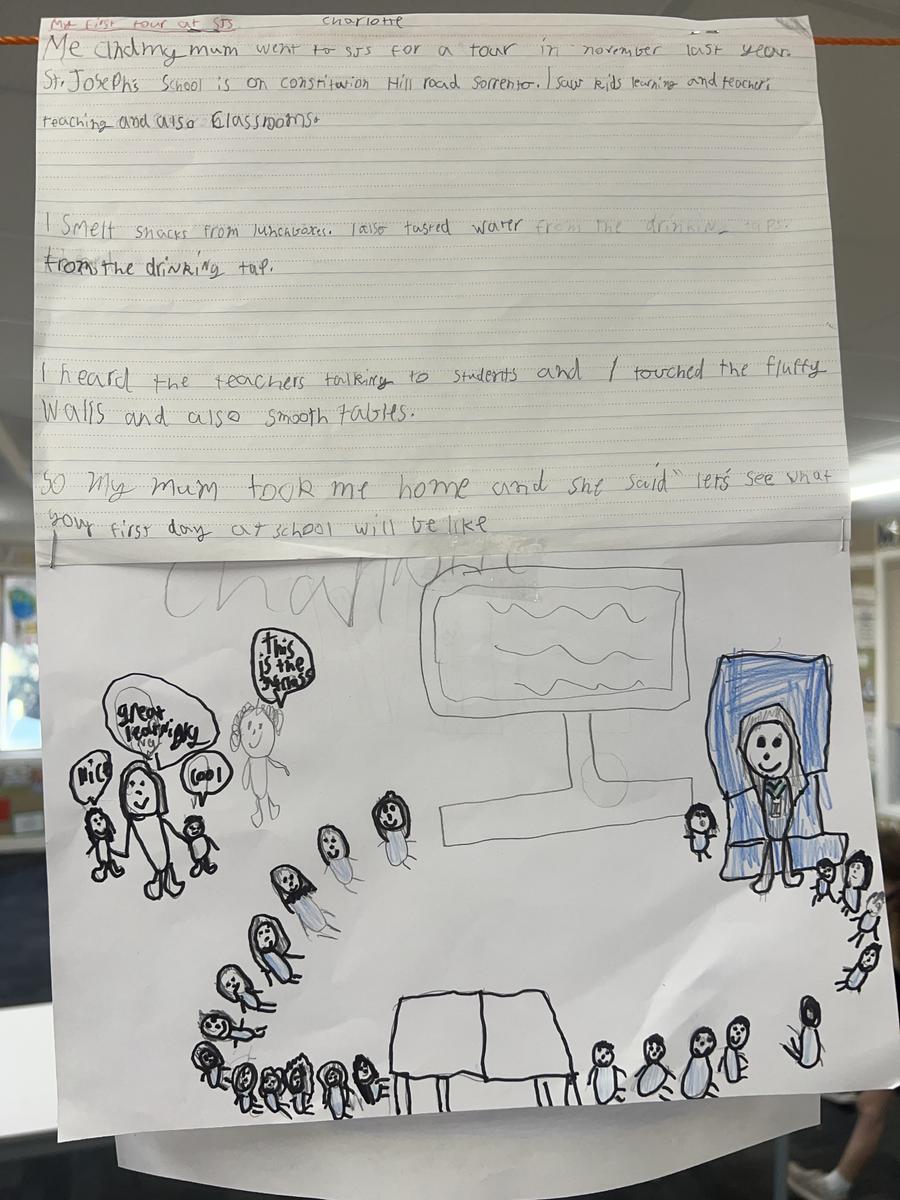 My first tour at SJS
Charlotte
Me and my mum went to SJS for a tour in november last year.
St. Joseph's School is on constitution Hill road Sorrento. I saw kids learning and teachers
teaching and also Classrooms.
I Smelt snacks from lunchboxes. I also tasted water from the drinking taps.
from the drinking tap.
I heard the teachers talking to students and I touched the fluffy
Walls and also smooth tables.
So My mum took me home and she said" let's see what
your first day at school will be like
Charlotte
this
is the
great
learning
Nice
Cool